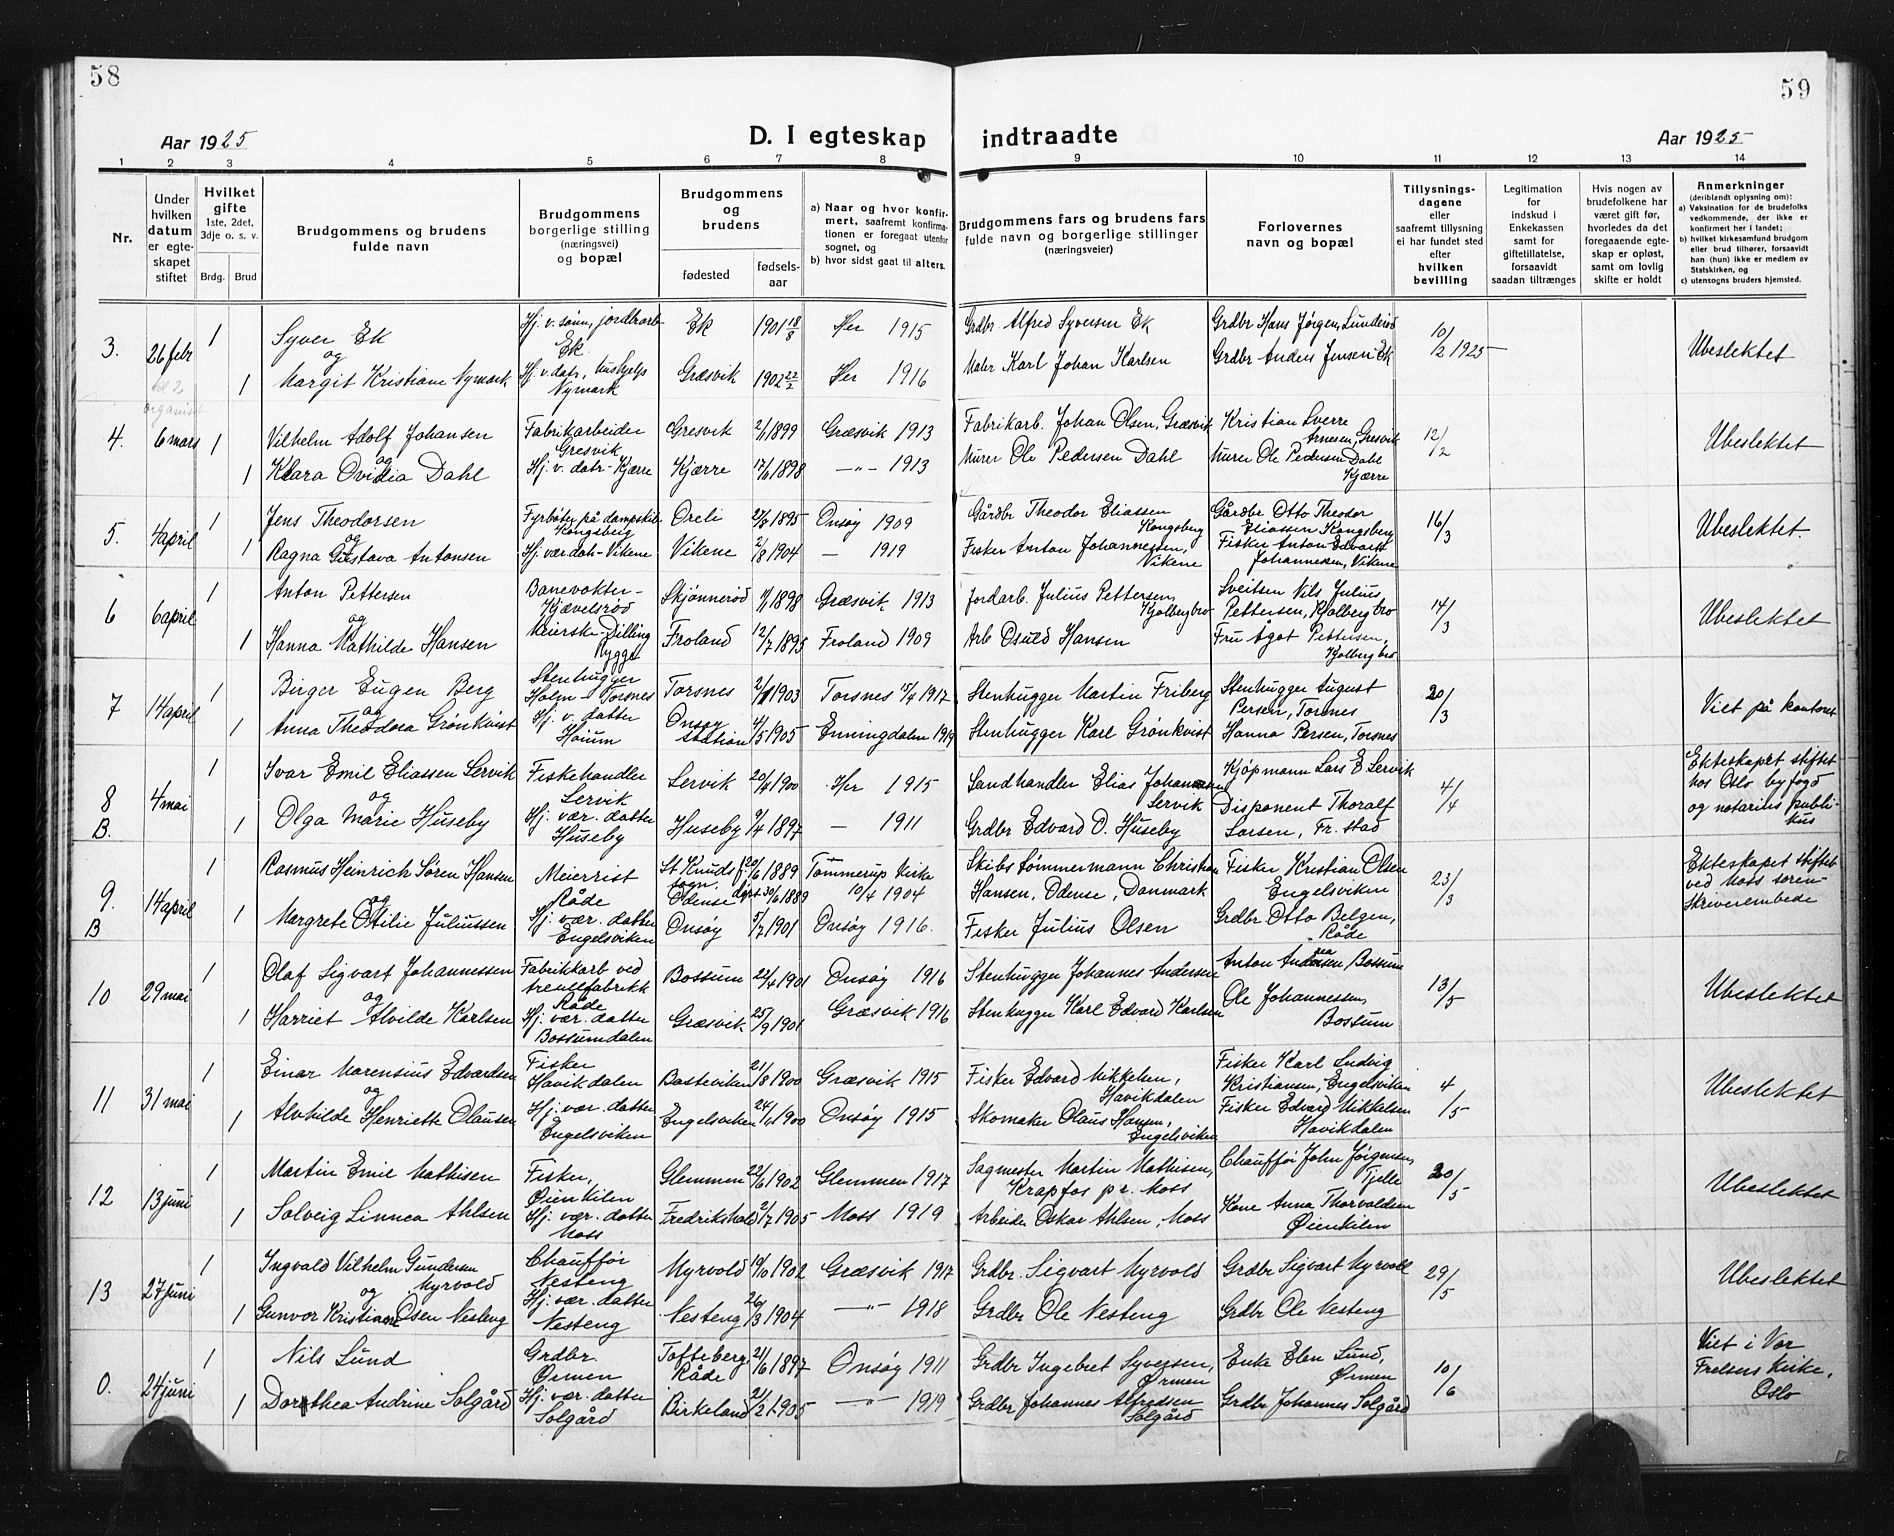 58
59
Aar 1925
D. I egteskap indtraadte
Aar 1925
1 2 3 4 5 6 7 8 9 10 11 12 13 14
Nr.
Under hvilken datum er egteskapet stiftet
Hvilket gifte 1ste, 2det, 3dje o. s. v.
Brdg. Brud
Brudgommens og brudens fulde navn
Brudgommens borgerlige stilling (næringsvei) og bopæl
Brudgommens og brudens
fødested fødselsaar
a) Naar og hvor konfirmert, saafremt konfirmationen er foregaat utenfor sognet, og
b) hvor sidst gaat til alters.
Brudgommens fars og brudens fars fulde navn og borgerlige stillinger (næringsveier)
Forlovernes navn og bopæl
Tillysningsdagene eller saafremt tillysning ei har fundet sted efter hvilken bevilling
Legitimation for indskud i Enkekassen samt for giftetillatelse, forsaavidt saadan tiltrænges
Hvis nogen av brudefolkene har været gift før, hvorledes da det foregaaende egteskap er opløst, samt om lovlig skifte er holdt
Anmerkninger (deriblandt oplysning om):
a) Vaksination for de brudefolks vedkommende, der ikke er konfirmert her i landet;
b) hvilket kirkesamfund brudgom eller brud tilhører, forsaavidt han (hun) ikke er medlem av Statskirken, og
c) utensogns bruders hjemsted.
3. 26 febr 1 Syver Ek Hj. v. sønn, jordbrarb Ek Ek 1901 18/8 Her 1915 Grdbr Alfred Syversen Ek Grdbr Hans Jørgen, Lunderød 10/2 1925 Ubeslektet
og
1 Margit Kristiane Nymark Hj. v. datr, hushjelp Nymark Græsvik 1902 22/2 Her 1916 Maler Karl Johan Karlsen Grdbr Anders Jensen Ek
organist
4. 6 mars 1 Vilhelm Adolf Johansen Fabrikarbeider Gresvik Gresvik 2/1 1899 Græsvik 1913 Fabrikarb. Johan Olsen, Græsvik Kristian Sverre Arnesen, Gresvik 12/2 Ubeslektet
og
1 Klara Ovidia Dahl Hj. v. datr - Kjærre Kjærre 17/6 1898 —"— 1913 Murer Ole Pedersen Dahl Murer Ole Pedersen Dahl Kjærre
5. 4 april 1 Jens Theodorsen Fyrbøter på dampskib Kongsberg Oreli 1895 Onsøy 1909 Gårdbr Theodor Eliassen Kongsberg Gårdbr Otto Theodor Eliassen Kongsberg 16/3 Ubeslektet.
og
1 Ragna Gustava Antonsen Hj. vær. datr - Vikene Vikene 2/8 1904 — 1919 Fisker Anton Johannessen, Vikene Fisker Anton Edvart Johannesen, Vikene
6 6 april 1 Anton Pettersen Banevokter - Kjævelsrød Skjønnerød 1898 Græsvik 1913 Jordarb. Julius Pettersen, Kjølberg bro Sveitser Nils Julius Pettersen, Kjølberg bro 14/3 Ubeslektet
og
1 Hanna Mathilde Hansen Meierske - Dilling Rygge Froland 12/7 1895 Froland 1909 Arb Osuld Hansen Fru Ågot Pettersen, Kjølberg bro
7 14 april 1 Birger Eugen Berg Stenhugger Holm - Torsnes Torsnes 1903 Torsnes 15/4 1917 Stenhugger Martin Friberg Stenhugger August Persen, Torsnes 20/3 Viet på kontoret
og
1 Anna Theodora Grönkvist Hj. v. datter Höium Onsøy station 4/5 1905 Enningdalen 1919 Stenhugger Karl Grönkvist Hanna Persen, Torsnes
8 B. 4 mai 1 Ivar Emil Eliassen Lervik Fiskehandler Lervik Lervik 1900 Her 1915 Landhandler Elias Johannesen Lervik Kjøpmann Lars E Lervik 4/4 Ekteskapet stiftet hos Oslo byfogd og notarius publikus
og
1 Olga Marie Huseby Hj. vær. datter Huseby Huseby 9/4 1897 — 1911 Grdbr Edvard O. Huseby Disponent Thoralf Larsen, Fr. stad
9. B 14 april 1 Rasmus Heinrich Søren Hansen Meierist Råde St Knuds sogn. Odense f. 20/6 1889 døpt 30/6 1889 Tommerup Kirke 10/4 1904 Skibstömmermann Christian Hansen, Odense, Danmark Fisker Kristian Olsen Engelsviken 23/3 Ekteskapet stiftet ved Moss sorenskriverembede
og
1 Margrete Otilie Juliussen Hj. vær. datter Engelsviken Onsøy 5/7 1901 Onsøy 1916. Fisker Julius Olsen Grdbr Otto Belgen, Råde
10 29 mai 1 Olaf Sigvart Johannessen Fabrikkarb ved treullfabrikk Råde Bossum 22/4 1901 Onsøy 1916 Stenhugger Johannes Andersen Anton Andersen Bossum 13/5 Ubeslektet
og
1 Harriet Alvilde Karlsen Hj. vær. datter Bossumdalen Græsvik 25/9 1901 Græsvik 1916 Stenhugger Karl Edvard Karlsen Ole Johannessen, Bossum
11 31 mai 1 Einar Marensius Edvardsen Fisker Havikdalen Basteviken 21/8 1900 Græsvik 1915 Fisker Edvard Mikkelsen, Havikdalen Fisker Karl Ludvig Kristiansen, Engelsviken 4/5 Ubeslektet
og
1 Alvhilde Henriette Olausen Hj. vær. datter Engelsviken Engelsviken 1900 Onsøy 1915 Skomaker Olaus Hansen, Engelsviken Fisker Edvard Mikkelsen Havikdalen
12 13 juni 1 Martin Emil Mathisen Fisker, Øienkilen Glemmen 22/6 1902 Glemmen 1917 Sagmester Martin Mathisen, Krapfos pr. Moss Chauffør John Jørgensen, Tjelle 20/5 Ubeslektet
1 Solveig Linnea Ahlsen Hj. vær. datter Moss Fredrikshald 2/7 1905 Moss 1919 Arbeider Oskar Ahlsen, Moss Kone Anna Thorvaldsen Øienkilen
13 27 juni 1 Ingvald Vilhelm Gundersen Myrvold Chauffør Nesteng Myrvold 19/10 1902 Græsvik 1917 Grdbr. Sigvart Myrvold Grdbr Sigvart Myrvold 29/5 Ubeslektet
og
1 Gunvor Kristiane Olsen Nesteng Hj. vær. datter Nesteng Nesteng 26/3 1904 —"— 1918 Grdbr Ole Nesteng Grdbr Ole Nesteng
0. 24 juni 1 Nils Lund Grdbr. Ørmen Tofteberg, Råde 21/6 1897 Onsøy 1911 Grdbr Ingebret Syversen, Ørmen Enke Elen Lund, Ørmen 10/6 Viet i Vor Frelsers Kirke, Oslo
1 Dorothea Andrine Solgård Hj. vær. datter Solgård Birkeland 21/2 1905 —"— 1919 Grdbr Johannes Alfredsen Solgård Grdbr Johannes Solgård